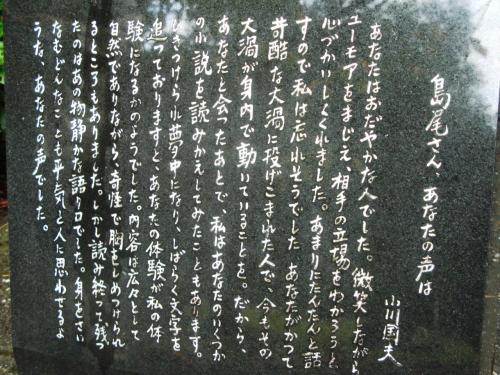 島尾さん、あなたの声は
小川国夫
あなたはおだやかな人でした。微笑しながら
ユーモアをまじえ、相手の立場をわかろうと、
心づかいしくれました。あまりにたんたんと話
すので私は忘れそうでした あなたがかつて
苛酷な大渦に投げこまれた人で、今もその
大渦が身内で動いていることを。だから、
あなたと会ったあとで、私はあなたのいくつか
の小説を読みかえしてみたこともあります。
ひきつけられ夢中になり、しばらく文字を
追っておりますと、あなたの体験が私の体
験になるかのようでした。内容は広々として
自然でありながら、奇怪で胸をしめつけられ
るところもありました。しかし読み終って残っ
たのはあの物静かな語り口でした。身をさい
なむどんなことも平気だと人に思わせるよ
うな、あなたの声でした。